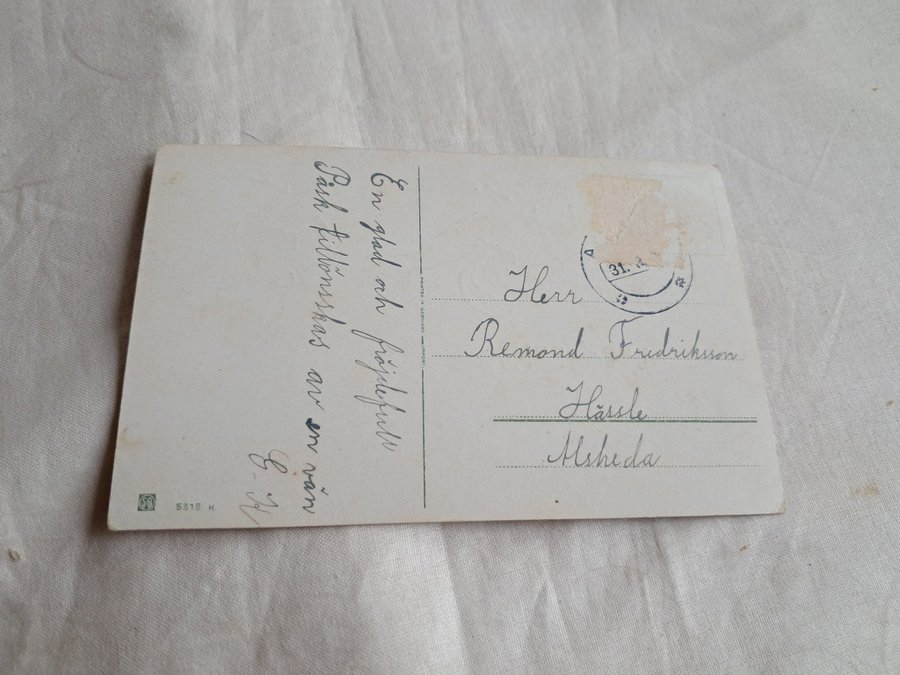 En glad och fröjdefull
Påsk tillönsskas av en vän
E-K
Herr
Remond Fredriksson
Hässle
Alsheda
31.
5818 H